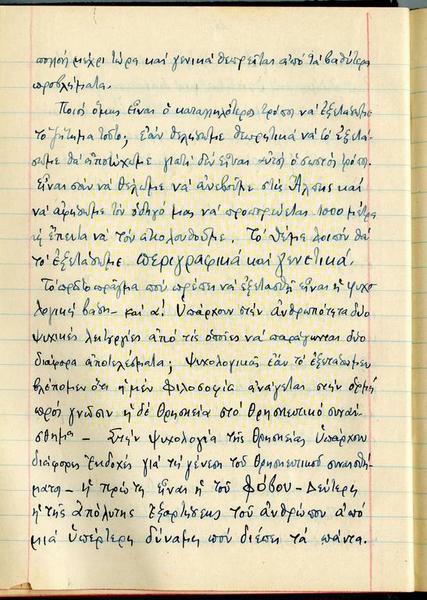 πολλοί μέχρι τώρα καί γενικά θεωρεῖται ἀπό τά βαθύτερα
προβλήματα.
Ποιός ὅμως εἶναι ὁ καταλληλότερος τρόπος νά ἐξετάσωμε
τό ζήτημα τοῦτο; ἐάν θελήσωμε θεωρητικά νά τό ἐξετά-
σωμε θά ἀποτύχωμε γιατί δέν εἶναι αὐτός ὁ σωστός τρόπος.
Εἶναι σάν νά θέλωμε νά ἀνεβοῦμε στίς Ἄλπεις καί
νά ἀφήσωμε τόν ὁδηγό μας νά προπορεύεται 1000 μέτρα
ἤ ἔπειτα νά τόν ἀκολουθοῦμε. Τό θέμα λοιπόν θά
τό ἐξετάσωμε περιγραφικά καί γενετικά.
Τό πρῶτο πρᾶγμα πού πρέπει νά ἐξετασθῇ εἶναι ἡ ψυχο-
λογική βάση - καί α! Ὑπάρχουν στήν ἀνθρωπότητα δύο
ψυχικές λειτουργίες ἀπό τίς ὁποῖες νά παράγωνται δύο
διάφορα ἀποτελέσματα; Ψυχολογικῶς ἐάν τό ἐξετάσωμεν
βλέπομεν ὅτι ἡ μέν φιλοσοφία ἀνάγεται στήν ὁρμή
πρός γνῶσιν ἡ δέ θρησκεία στό θρησκευτικό συναί-
σθημα - Στήν ψυχολογία τῆς θρησκείας ὑπάρχουν
διάφορες ἐκδοχές γιά τή γένεση τοῦ θρησκευτικοῦ συναισθή-
ματος - ἡ πρώτη εἶναι ἡ τοῦ Φόβου - Δεύτερη
ἡ τῆς ἀπόλυτης ἐξαρτήσεως τοῦ ἀνθρώπου ἀπό
μιά ὑπέρτερη δύναμη πού διέπει τά πάντα.